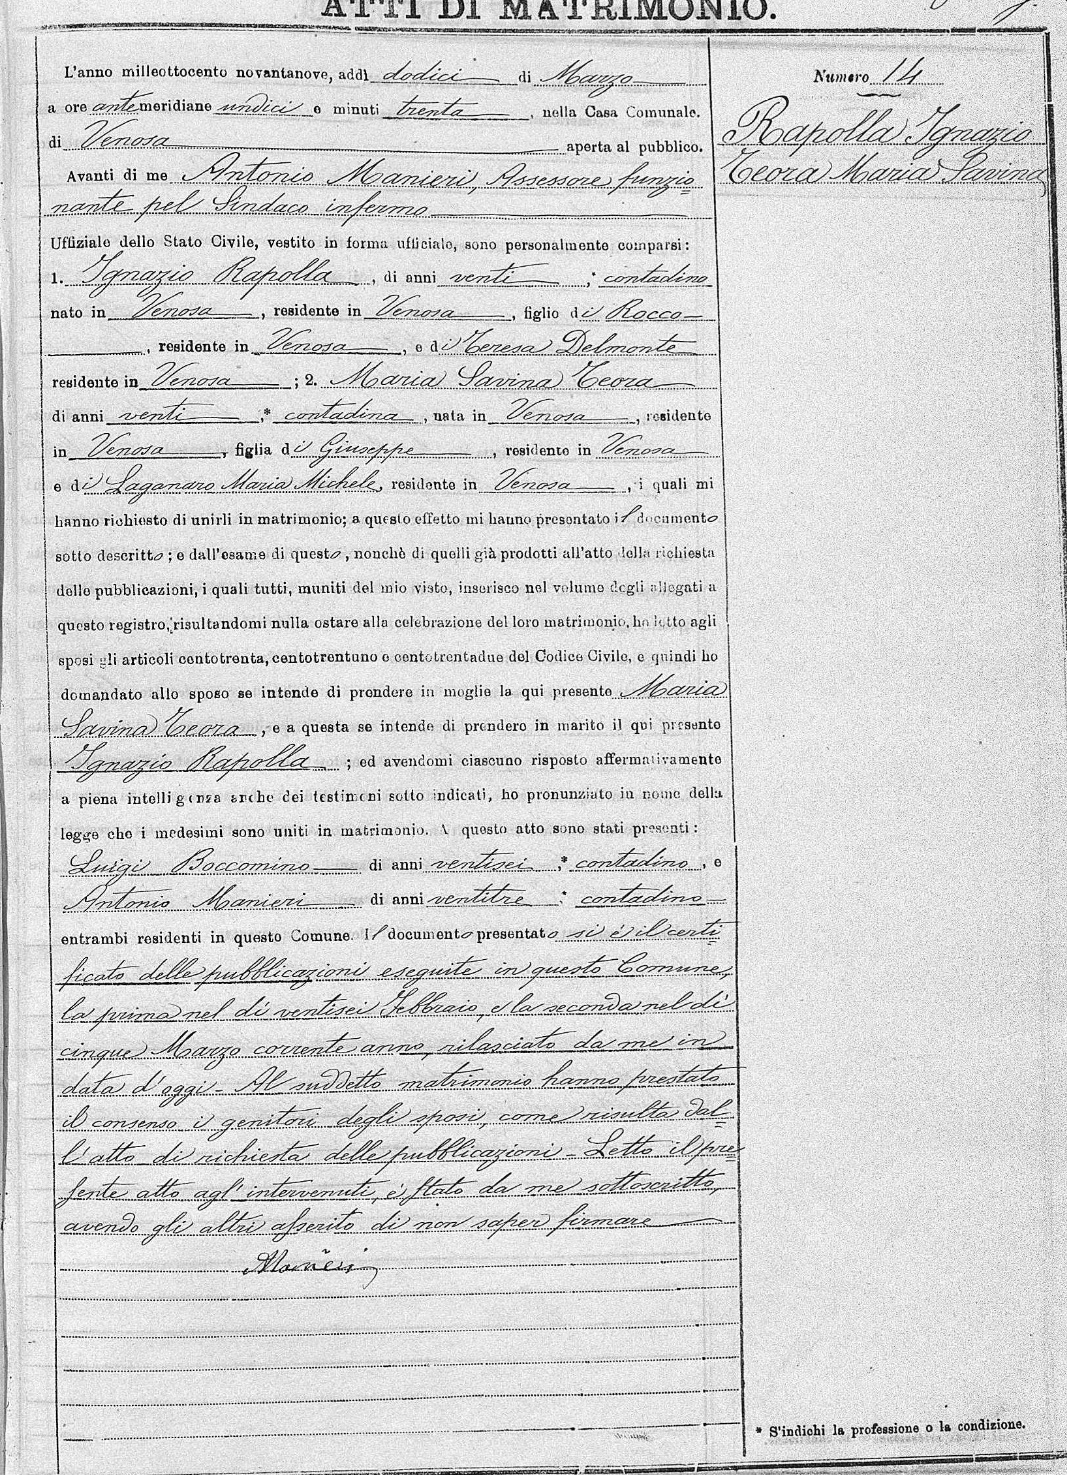 ATTI DI MATRIMONIO.
L'anno milleottocento novantanove, addì dodici di Marzo
a ore antemeridiane undici e minuti trenta, nella Casa Comunale.
di Venosa aperta al pubblico.
Avanti di me Antonio Manieri, Assessore funzio
nante pel Sindaco infermo
Uffiziale dello Stato Civile, vestito in forma ufficiale, sono personalmente comparsi:
1. Ignazio Rapolla, di anni venti; contadino
nato in Venosa, residente in Venosa, figlio di Rocco
, residente in Venosa, e di Teresa Delmonte
residente in Venosa; 2. Maria Savina Teora
di anni venti,* contadina, nata in Venosa, residente
in Venosa, figlia di Giuseppe, residente in Venosa
e di Laganaro Maria Michele, residente in Venosa, i quali mi
hanno richiesto di unirli in matrimonio; a questo effetto mi hanno presentato il documento
sotto descritto; e dall'esame di questo, nonchè di quelli già prodotti all'atto della richiesta
delle pubblicazioni, i quali tutti, muniti del mio visto, inserisco nel volume degli allegati a
questo registro, risultandomi nulla ostare alla celebrazione del loro matrimonio, ho letto agli
sposi gli articoli centotrenta, centotrentuno e centotrentadue del Codice Civile, e quindi ho
domandato allo sposo se intende di prendere in moglie la qui presente Maria
Savina Teora, e a questa se intende di prendere in marito il qui presente
Ignazio Rapolla; ed avendomi ciascuno risposto affermativamente
a piena intelligenza anche dei testimoni sotto indicati, ho pronunziato in nome della
legge che i medesimi sono uniti in matrimonio. A questo atto sono stati presenti:
Luigi Boccomino di anni ventisei,* contadino, e
Antonio Manieri di anni ventitre * contadino
entrambi residenti in questo Comune. Il documento presentato si è il certi
ficato delle pubblicazioni eseguite in questo Comune,
la prima nel dì ventisei Febbraio, e la seconda nel dì
cinque Marzo corrente anno, rilasciato da me in
data d'oggi - Al suddetto matrimonio hanno prestato
il consenso i genitori degli sposi, come risulta dal=
l'atto di richiesta delle pubblicazioni - Letto il pre=
sente atto agl'intervenuti, è stato da me sottoscritto,
avendo gli altri asserito di non saper firmare
Manieri
Numero 14
Rapolla Ignazio
Teora Maria Savina
* S'indichi la professione o la condizione.